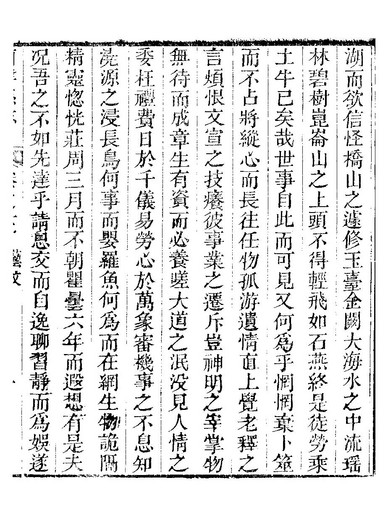 湖而欲信怪橋山之遽修玉臺金闕大海水之中流瑶
林碧樹崑崙山之上頭不得輕飛如石燕終是徒勞乘
土牛已矣哉世事自此而可見又何爲乎惘惘棄卜筮
而不占將縱心而長往任物孤游遺情直上覺老釋之
言煩恨文宣之技癢彼事業之遷斥豈神明之宰掌物
無待而成章生有資而必養嗟大道之泯没見人情之
委枉禮費日於千儀易勞心於萬象審機事之不息知
澆源之浸長鳥何事而嬰羅魚何爲而在網生物詭隔
精靈惚恍莊周三月而不朝瞿曇六年而遐想有是夫
況吾之不如先達乎請息交而自逸聊習靜而爲娛遂
藝文